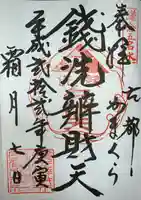 奉拝
古都
かまくら
銭洗辯財天
平成貳拾貳年庚寅
霜月
七日